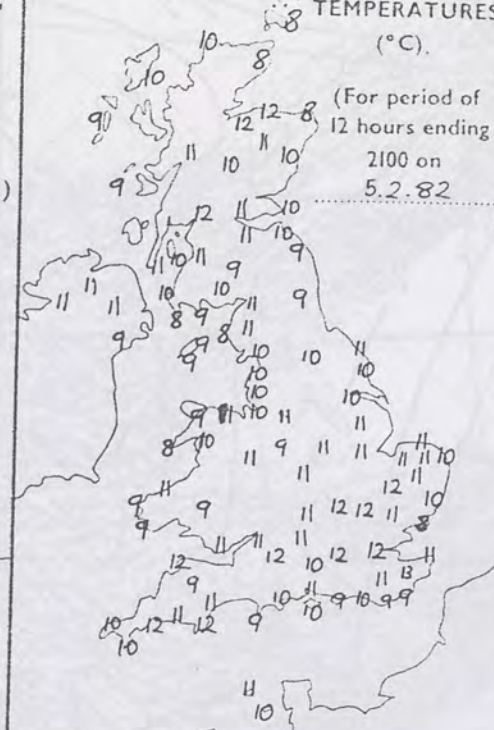 TEMPERATURES
(°C).
(For period of
12 hours ending
2100 on
5.2.82
)
8
10 8
10
9 12 12 8
11 11
10 10
9
12 11 10
11 10
11 10 11 9
9
11 11 10 10 11 9
11 8 9
9 9 8 11
10 10 11
10 10
10 10
9 11 10 11 11
8 10 9 11 11 11
11 11 11 10
11 11
11 12
9 9 11 12 12 11 10
9 8
11 11 11
12 12 10 12 12 11
9 11 11 13
11 10 10 9 10 9 9
10 12 11 12 9
10
11
10